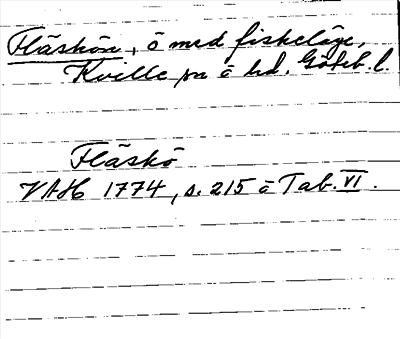 Fläskön, ö med fiskeläge,
Kville sn o hd. Göteb. l.
Fläskö
VAH 1774, s. 215 å Tab. VI.